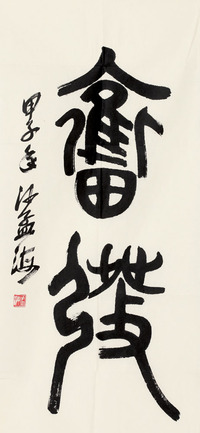 奮發
甲子年 沙孟海